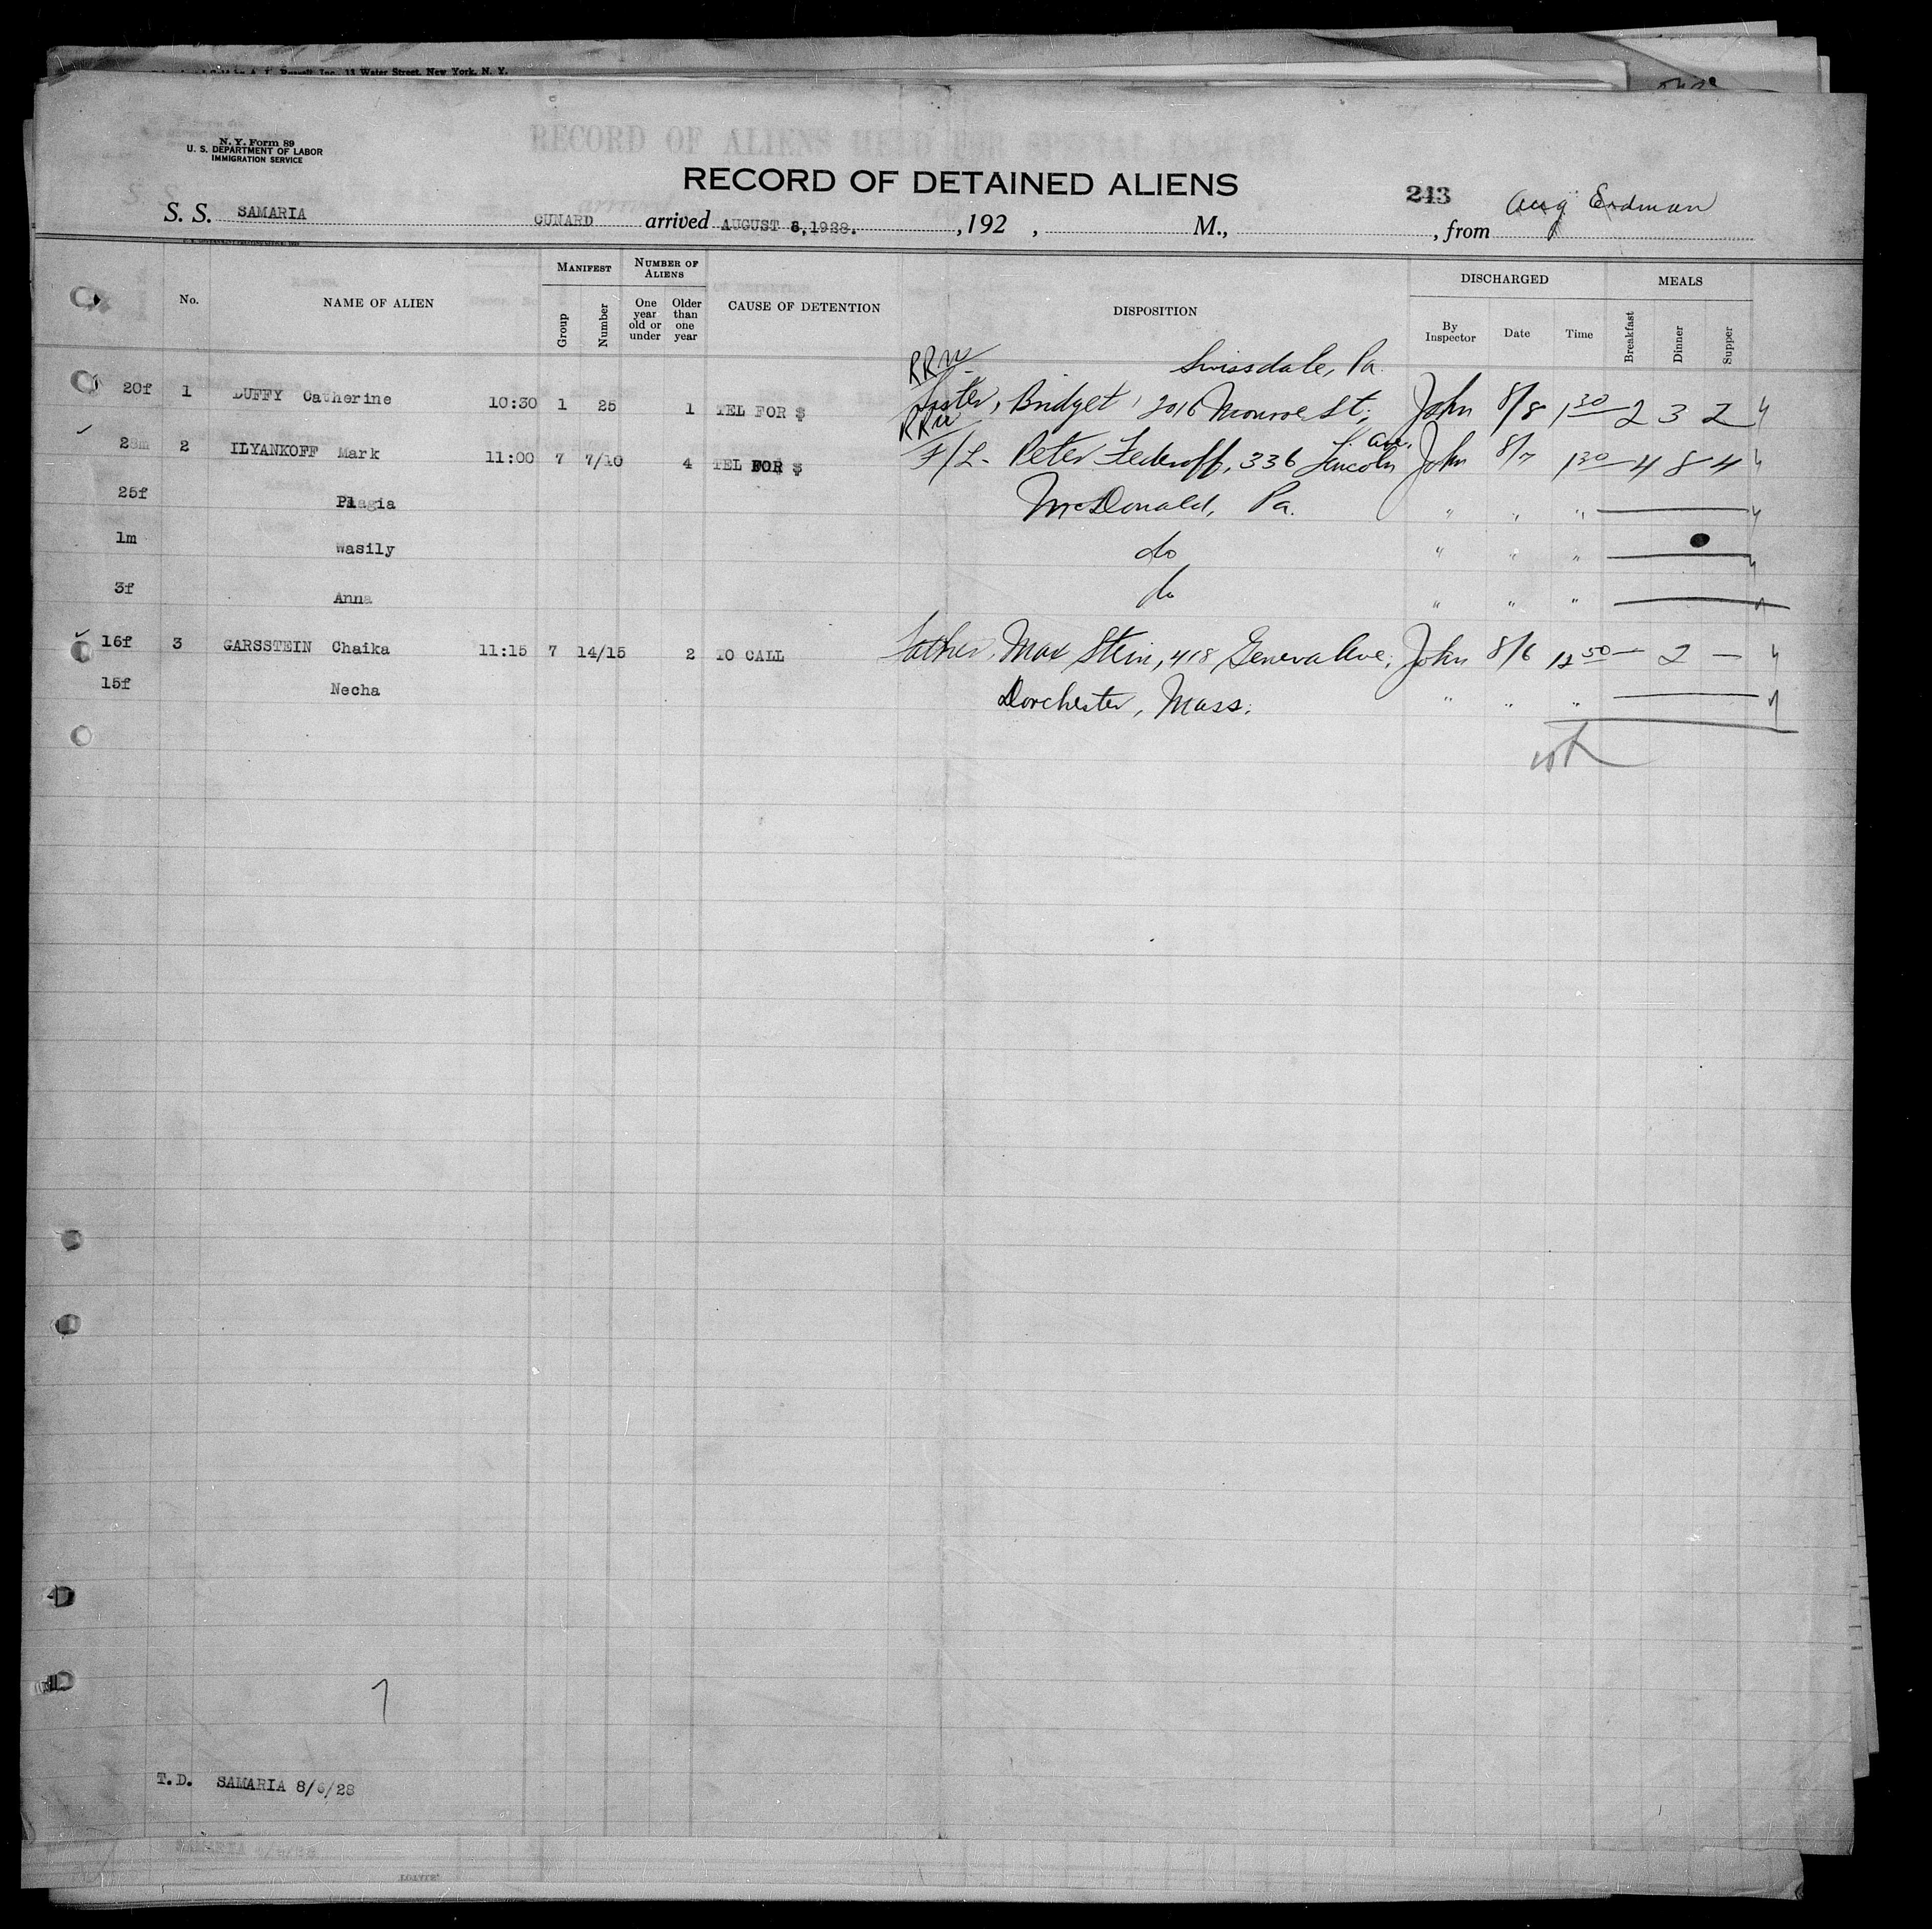 Inc., 11 Water Street, New York, N. Y.
N. Y. Form 89
U. S. DEPARTMENT OF LABOR
IMMIGRATION SERVICE
RECORD OF ALIENS HELD FOR SPECIAL INQUIRY
RECORD OF DETAINED ALIENS
243 Aug Erdman
S. S. SAMARIA CUNARD arrived AUGUST 6, 1928. , 192 , M., , from
No. NAME OF ALIEN MANIFEST Group Number NUMBER OF ALIENS One year old or under Older than one year CAUSE OF DETENTION DISPOSITION DISCHARGED By Inspector Date Time MEALS Breakfast Dinner Supper
RRW Swissdale, Pa.
20f 1 DUFFY Catherine 10:30 1 25 1 TEL FOR $ Sister, Bridget, 2016 Monroe St; John 8/8 1 30 2 3 2
RRW Ave.
28m 2 ILYANKOFF Mark 11:00 7 7/10 4 TEL FOR $ F/L- Peter Federoff, 336 Lincoln John 8/7 1 30 4 8 4
25f Plagia McDonald, Pa. " " "
1m Wasily do " " "
3f Anna do " " "
16f 3 GARSSTEIN Chaika 11:15 7 14/15 2 TO CALL Father, Max Stein, 418 Geneva Ave, John 8/6 12 50 — 2 —
15f Necha Dorchester, Mass. " " "
7
T.D. SAMARIA 8/6/28